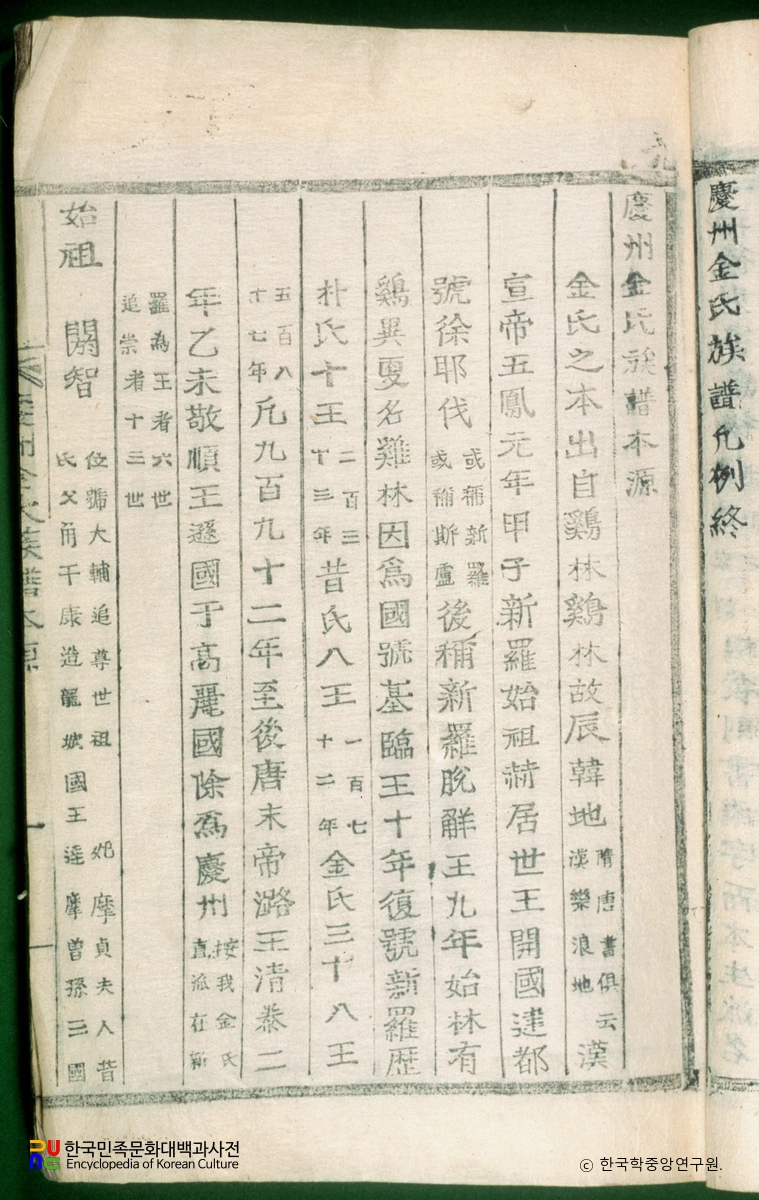 慶州金氏族譜凡例終
慶州金氏族譜本源
金氏之本出自鷄林鷄林故辰韓地隋唐書俱云漢樂浪地漢
宣帝五鳳元年甲子新羅始祖赫居世王開國建都
號徐耶伐或稱新羅或稱斯盧後稱新羅脫解王九年始林有
鷄異更名雞林因爲國號基臨王十年復號新羅歷
朴氏十王二百三十三年昔氏八王一百七十二年金氏三十八王
五百八十七年凡九百九十二年至後唐末帝潞王清泰二
年乙未敬順王遜國于高麗國除爲慶州按我金氏直派在新
羅爲王者六世追崇者十三世
始祖 閼智 位號大輔追尊世祖 妃摩貞夫人昔
氏父角干康造龍城國王逹摩曾孫三國
慶州金氏族譜本源
한국민족문화대백과사전
Encyclopedia of Korean Culture
© 한국학중앙연구원.